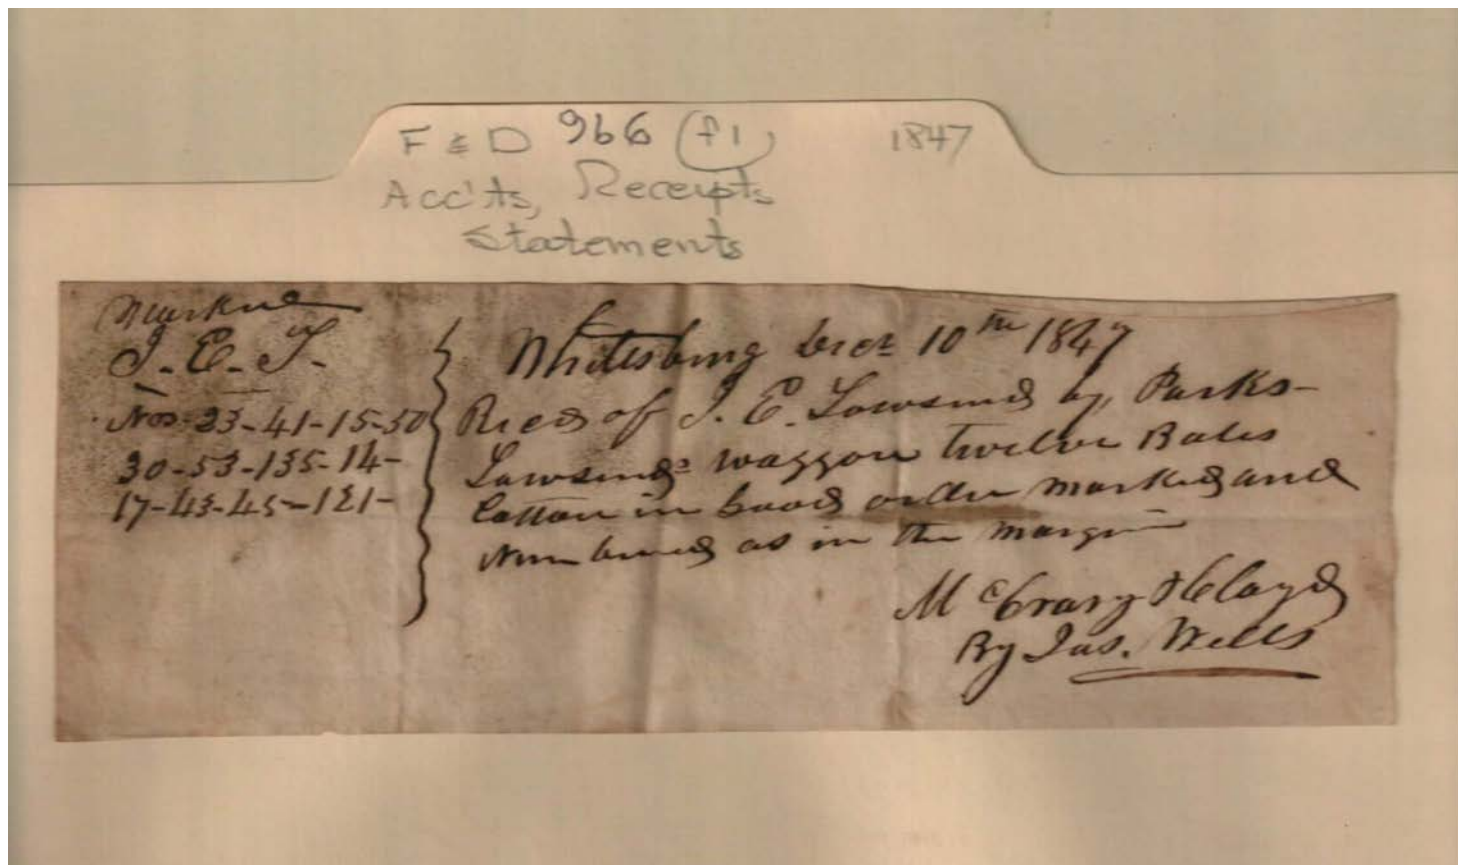 F & D 966 (f1) 1847
Acc'ts, Receipts
Statements
Marked
J. E. T.
Nos. 33-41-15-50
30-53-135-14-
17-43-45-121-
Whitesburg Decr 10th 1847
Recd of J. E. Townsend by Parks-
Townsends waggon twelve Bales
Cotton in good order marked and
Numbered as in the margin
McCrary & Cloyd
By Jas. Wells